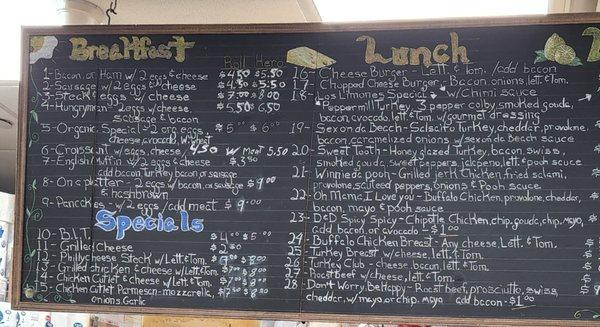 Breakfast
Roll Hero
1- Bacon or Ham w/ 2 eggs & cheese $4.50 $5.50
2- Sausage w/ 2 eggs & cheese $4.50 $5.50
3- Steak & eggs w/ cheese
4- Hungryman - w/ eggs w/ cheese $5.50 6.50
sausage & bacon
5- Organic Special - 2 org. eggs
cheese, avocado,
6- Croissant w/ eggs, cheese 4.50 w/ meat 5.50
7- English Muffin w/ 2 eggs & cheese $3.50
add bacon, Turkey bacon or sausage
8- On a platter - 2 eggs w/ bacon, or sausage $9.00
& hashbrown
9- Pancakes - w/ 2 eggs / add meat $9.00
Specials
10- B.L.T.
11- Grilled Cheese
12- Philly cheese Steak w/ Lett. & Tom.
13- Grilled chicken & cheese w/ Lett & Tom.
14- Chicken Cutlet & cheese w/ Lett. & Tom
15- Chicken Cutlet Parmesan - mozzarella,
onions, Garlic
Lunch
16- Cheese Burger - Lett. & Tom. /add bacon
17- Chopped Cheese Burger - Bacon onions, lett. & Tom.
18- Las Limones Special w/ Chimi sauce
Peppermill Turkey, 3 pepper colby, smoked gouda,
bacon, avocado, lett. & Tom. w/ gourmet dressing
19- Sex on da Beach - Salsalito Turkey, cheddar, provolone,
bacon, carameized onions w/ sex on de Beach sauce
20- Sweet Tooth - Honey glazed Turkey, bacon, swiss,
smoked gouda, sweet peppers, jalapeno, lett. & pooh sauce
21- Winnie d' pooh - Grilled jerk Chicken, fried salami,
provalone, sauteed peppers, onions & Pooh sauce
22- Oh Mama I Love you - Buffalo Chicken, provolone, cheddar,
bacon, mayo & pooh sauce
23- D&D Spicy Spicy - Chipotle Chicken, chip, gouda, chip, mayo,
add bacon, or avocado - $1.00
24- Buffalo Chicken Breast - Any cheese, Lett. & Tom.
25- Turkey Breast w/ cheese, lett. & Tom.
26- Turkey Club - cheese, bacon lett. & Tom.
27- Roast Beef w/ cheese, lett. & Tom.
28- Don't Worry, Be Happy - Roast beef, prosciutto, swiss,
cheddar, w/ mayo, or chip. mayo add bacon - $1.00